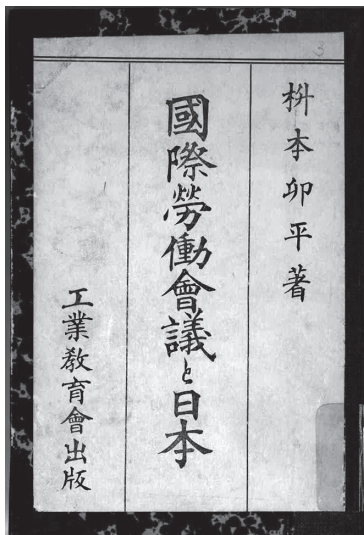 枡本卯平著
國際勞働會議と日本
工業教育會出版
3